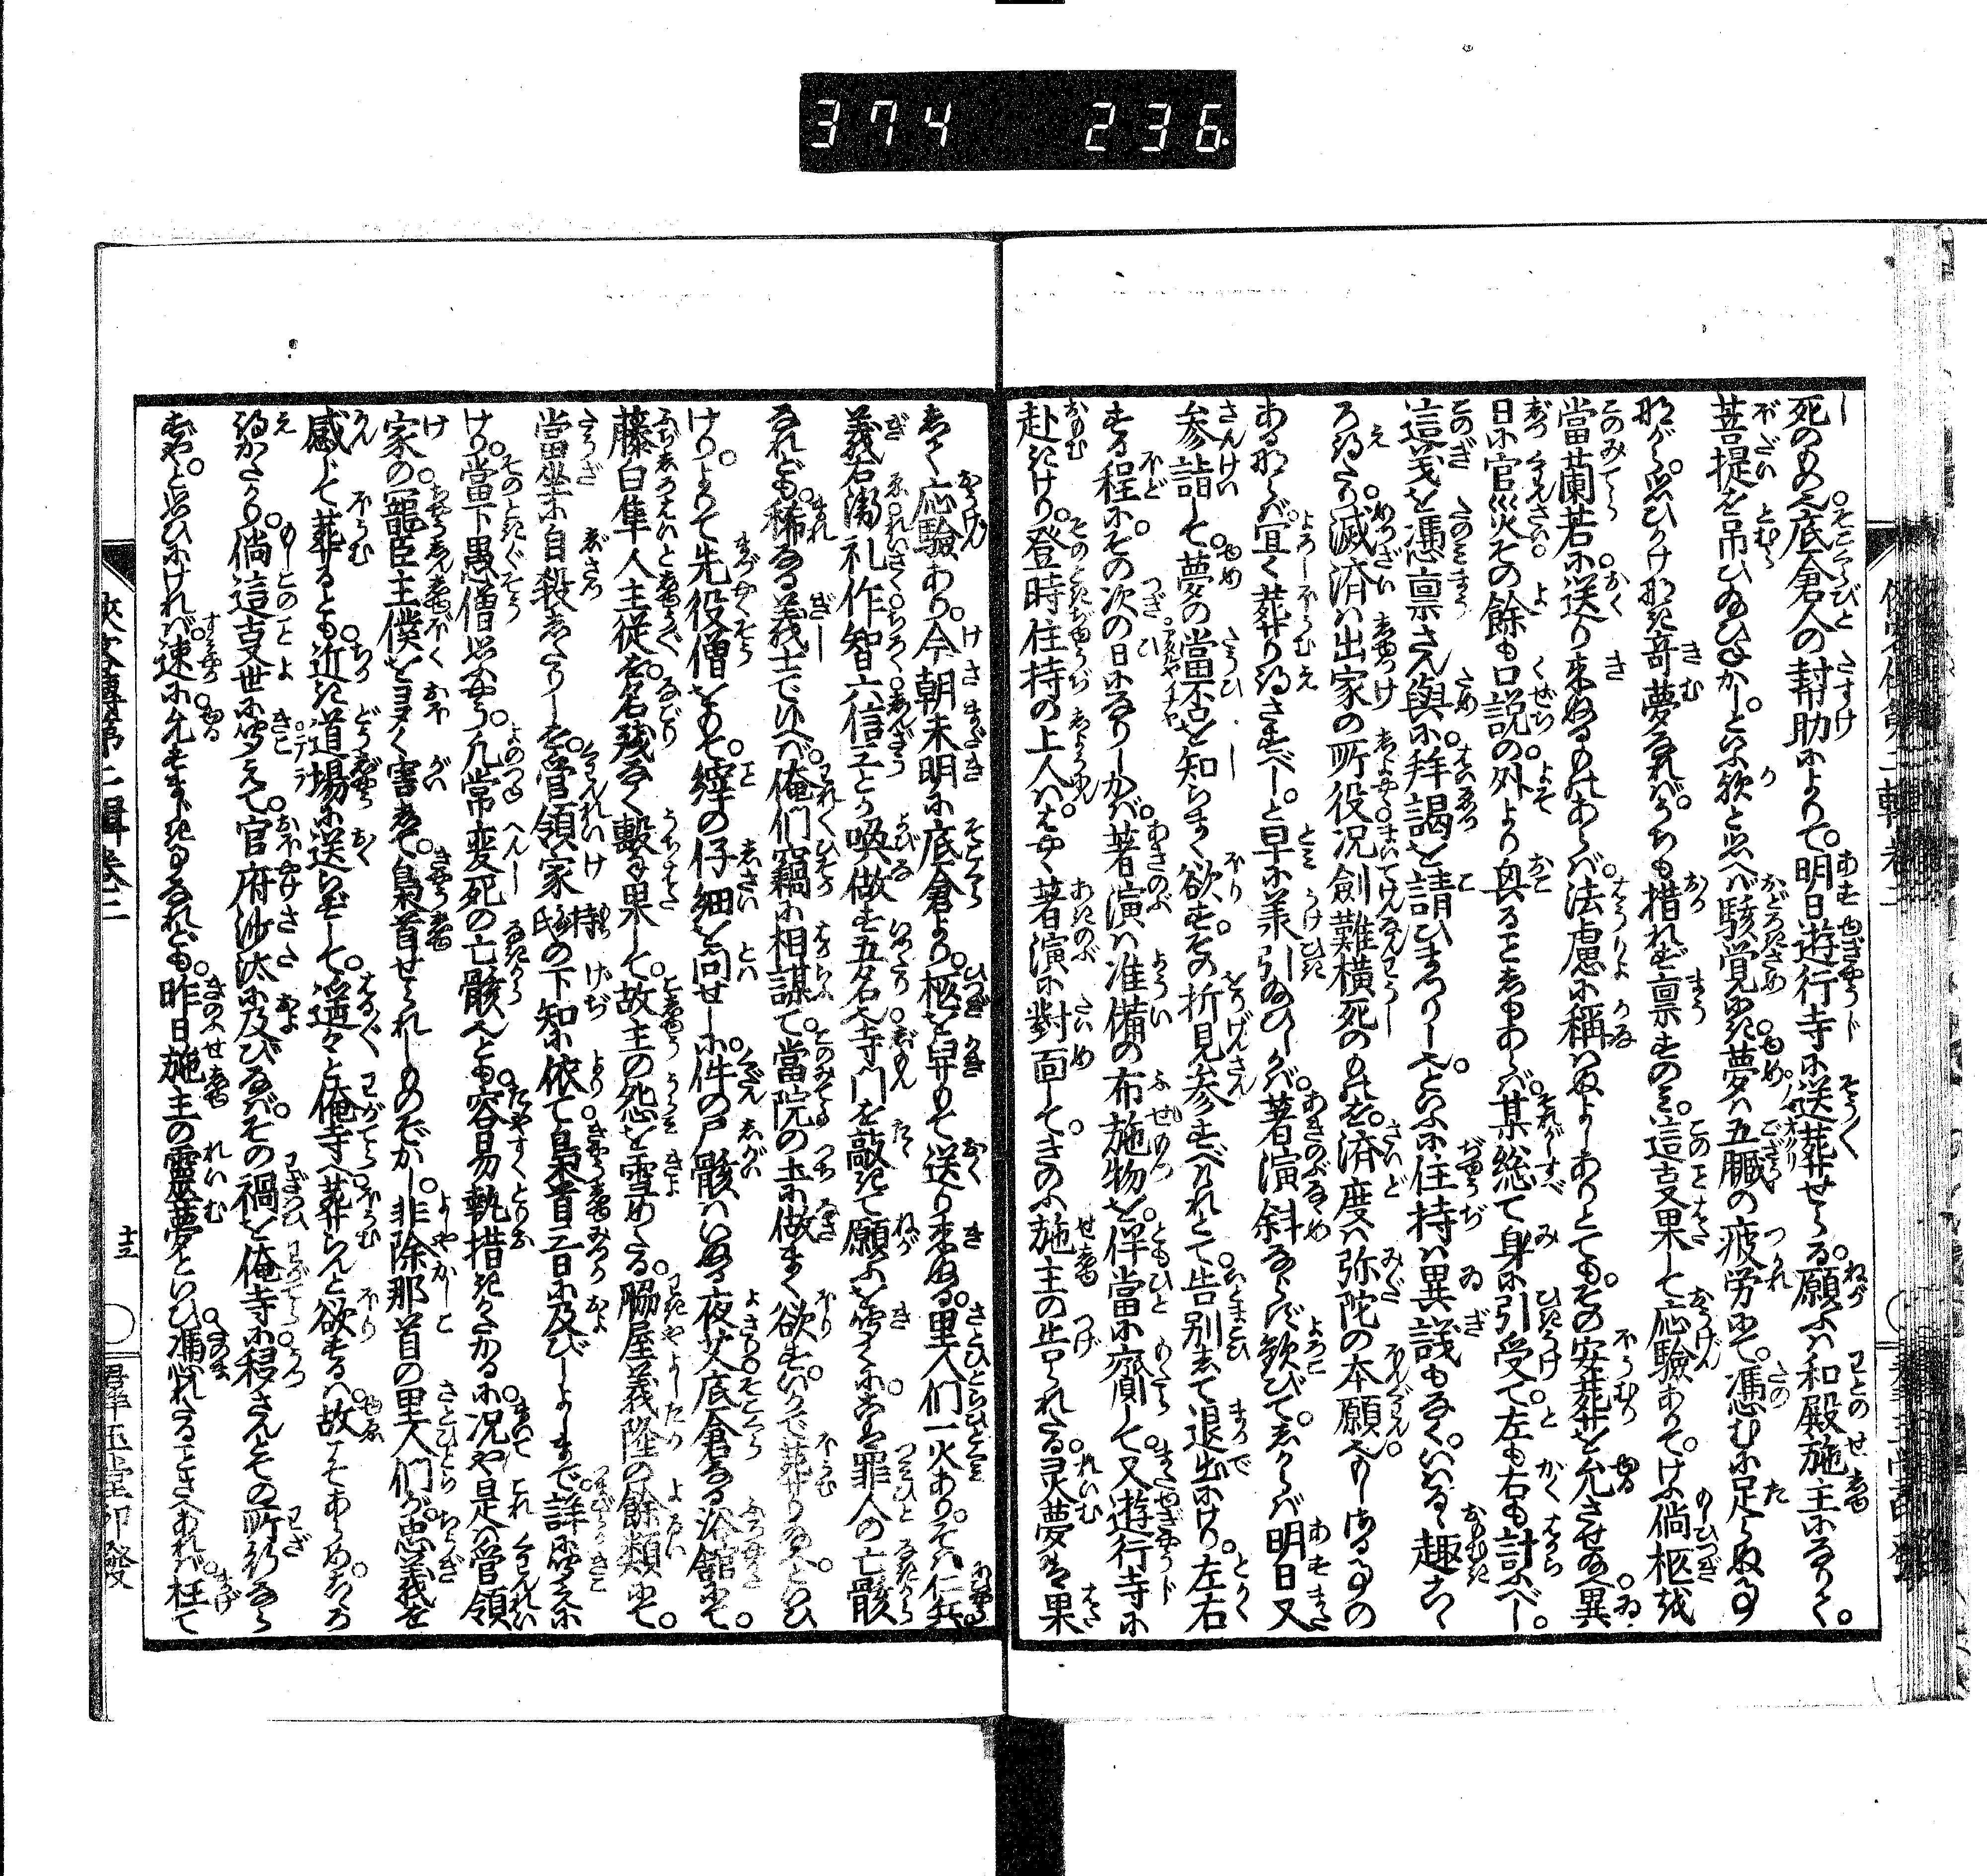 374 236
死のめへ底倉人の幇助によりて。明日遊行寺に送葬せらる。願ふハ和殿施主になりて。
菩提を吊ひねひねかし。といふ歟と思へハ駭覚にき夢ハ五臓の疲労にて。憑むに足らぬ事
ながら。思ひかけなき奇夢なれバ。うちも措れず禀すのミ。這叓果して応驗ありて。けふ倘柩を
當蘭若に送り来ぬるものあらバ。法慮に稱ハぬよしありとても。その安葬を允させ給へ。異
日に官災その餘も口説の外より与ることしもあらバ。某総て身に引受て。左も右も計ふべし。
這義を憑禀さん與に。拝謁を請ひまつりし也。といふに住持ハ異議もなく。いはるゝ趣こゝ
ろ得たり。滅済ハ出家の所役。况劍難横死のものを。済度ハ弥陀の本願也。もしさる事の
あるならバ。宜く葬り得さすべし。と早に羕引給ひしかバ。著演斜ならず歓びて。しからバ明日又
参詣して。夢の當否を知らまく欲す。その折見参すべけれとて。告別して退出けり。左右
する程に。その次の日になりしかバ。著演ハ准備の布施物を。伴當に齎して。又遊行寺に
赴きけり。登時住持の上人ハ。はやく著演に對面して。きのふ施主の告られたる。灵夢は果
して応驗あり。今朝未明に底倉より。柩を舁もて送り来ぬる。里人们一火あり。そハ仁兵
義右衛礼作智六信三とか喚做す五名也。寺门を敲きて願ふを聞くに。こハ罪人の亡骸
なれども。稀なる義士でいへバ。俺们竊に相謀て。當院の土に做まく欲す。いかで葬り給へといひ
けり。よりて先役僧をもて。縡の仔細を问せしに。件の尸骸ハいぬる夜艾。底倉なる浴舘にて。
藤白隼人主従を。名残なく毄ち果して。故主の怨を雪めたる。脇屋義隆の餘類にて。
當坐に自殺したりしを。管領家持氏の下知に依て。梟首三日に及びしよしまで。詳に聞えに
けり。當下愚僧思ふやう。凡常変死の亡骸也とも。容易執措きかたかるに。况や是ハ管領
家の寵臣主僕をヨク害して。梟首せられしものぞかし。非除那首の里人们が。忠義を
感じて葬るとも。近き道場に送らずして。遙々と俺寺へ。葬らんと欲するハ。故こそあらめ。こゝろ
得かたかり。倘這叓世に聞えて。官府沙汰に及びなバ。その禍を俺寺に。移さんその所行なら
ずや。と思ひにけれバ。速に允すまじきなれども。昨日施主の靈夢といひ。憑れたることさへあれバ。枉て
侠客傳第二輯巻二
十三
群玉堂印發